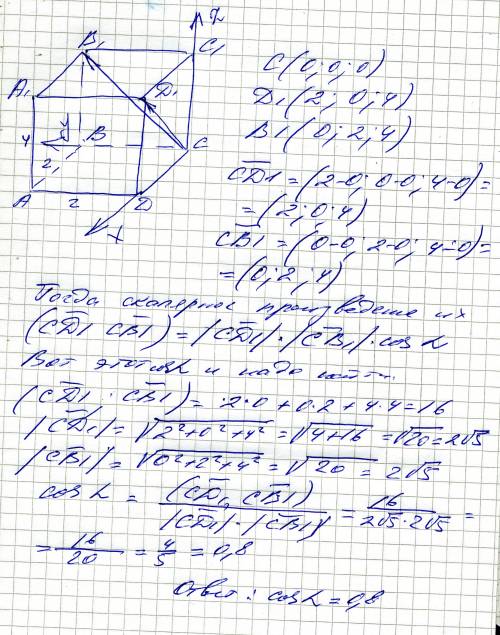 z
B1 C1
A1 D1
y
4 B C
2
A 2 D
x
C(0; 0; 0)
D1(2; 0; 4)
B1(0; 2; 4)
CD1 = (2-0; 0-0; 4-0) =
= (2; 0; 4)
CB1 = (0-0; 2-0; 4-0) =
= (0; 2; 4)
Тогда скалярное произведение их
(CD1 CB1) = |CD1|·|CB1|·cos α
Вот этот cos α и надо найти.
(CD1 · CB1) = 2·0 + 0·2 + 4·4 = 16
|CD1| = √2²+0²+4² = √4+16 = √20 = 2√5
|CB1| = √0²+2²+4² = √20 = 2√5
cos α = (CD1, CB1) / |CD1|·|CB1| = 16 / 2√5·2√5 =
= 16/20 = 4/5 = 0,8
Ответ: cos α = 0,8